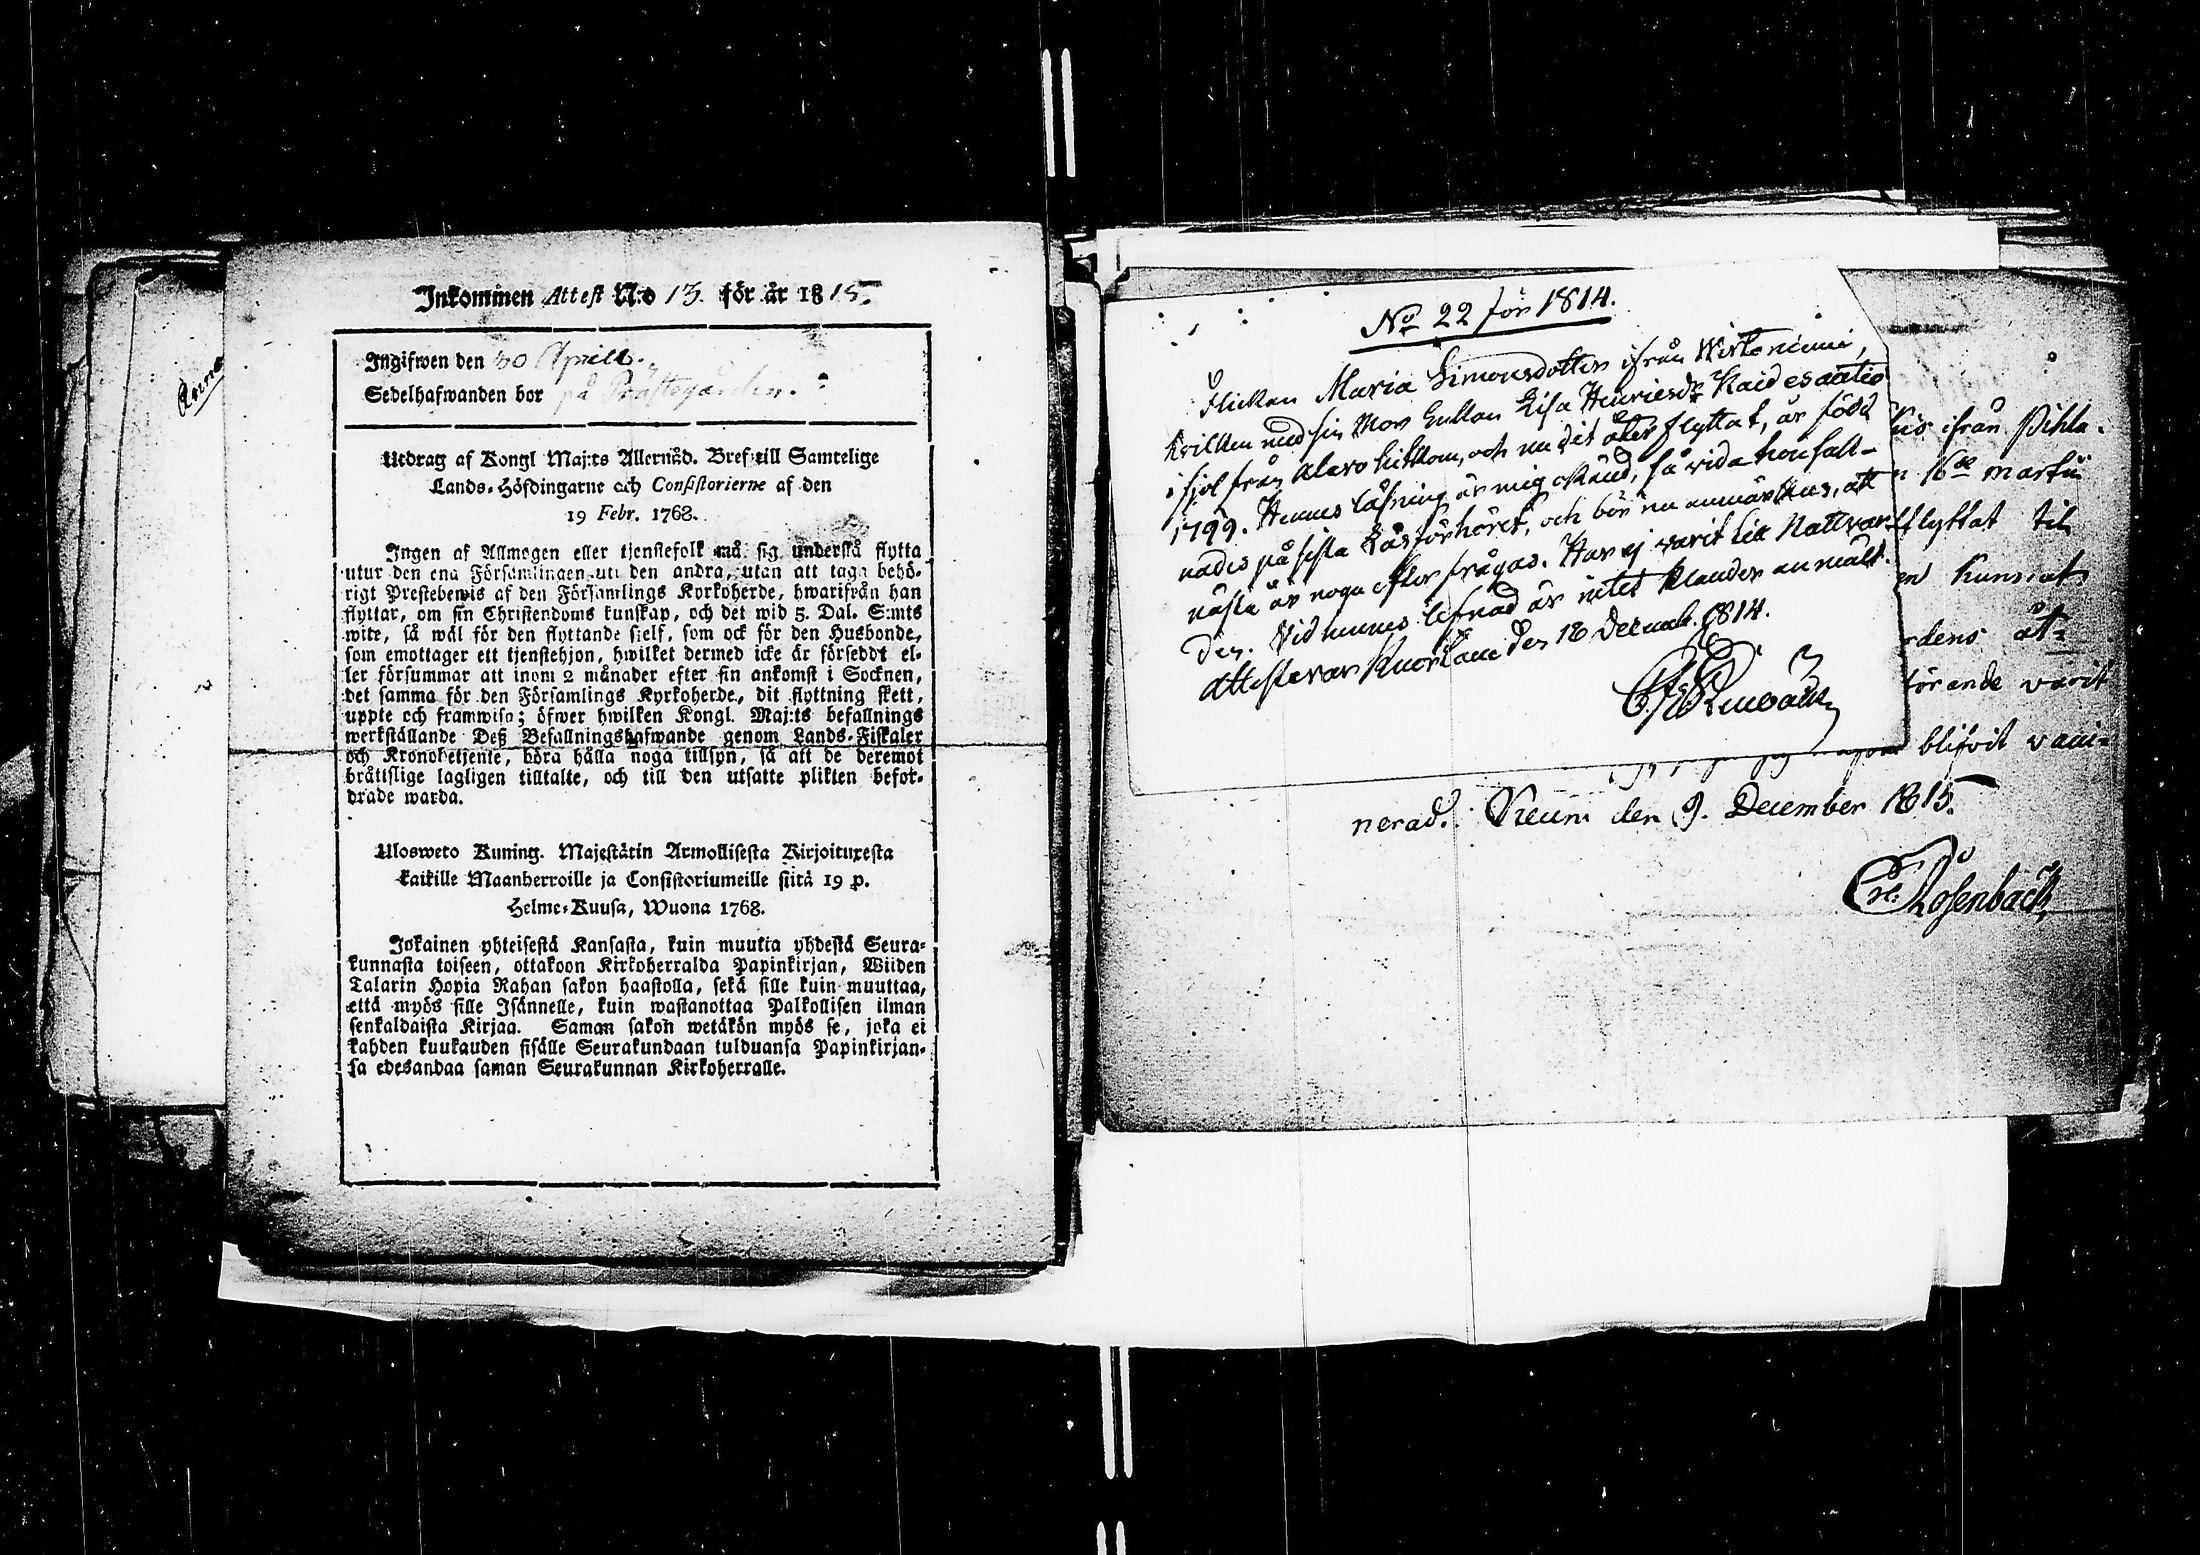 Anna
Inkommen Attest N:o 13. för år 1815.
Ingifwen den 30 Aprill.
Sedelhafwanden bor på Prästegården.
Utdrag af Kongl Maj:ts Allernåd. Bref till Samtelige
Lands-Höfdingarne och Consistorierne af den
19 Febr. 1768.
Ingen af Allmogen eller tjenstefolk må sig understå flytta
utur den ena Församlingen uti den andra, utan att taga behö-
rigt Prestebewis af den Församlings Kyrkoherde, hwarifrån han
flyttar, om sin Christendoms kunskap, och det wid 5. Dal. S:mts
wite, så wäl för den flyttande sjelf, som ock för den Husbonde,
som emottager ett tjenstehjon, hwilket dermed icke är försedt el-
ler försummar att inom 2 månader efter sin ankomst i Socknen,
det samma för den Församlings Kyrkoherde, dit flyttning skett,
uppte och framwisa; öfwer hwilken Kongl. Maj:ts befallnings
werkställande Deß Befallningshafwande genom Lands-Fiskaler
och Kronobetjente, böra hålla noga tillsyn, så att de deremot
bråttslige lagligen tilltalte, och till den utsatte plikten befor-
drade warda.
Ulosweto Kuning. Majestätin Armollisesta Kirjoituxesta
kaikille Maanherroille ja Consistoriumeille siitä 19 p.
Helme-Kuusa, Wuona 1768.
Jokainen yhteisestä Kansasta, kuin muutta yhdestä Seura-
kunnasta toiseen, ottakoon Kirkoherralda Papinkirjan, Wiiden
Talarin Hopia Rahan sakon haastolla, sekä sille kuin muuttaa,
että myös sille Isännelle, kuin wastanottaa Palkollisen ilman
senkaldaista Kirjaa. Saman sakon wetäkön myös se, joka ei
kahden kuukauden sisälle Seurakundaan tulduansa Papinkirjan-
sa edesandaa saman Seurakunnan Kirkoherralle.
No 22 för 1814.
Flickan Maria Simonsdotter ifrån Wirtaniemi,
hvilken med sin Mor Enkan Lisa Henricsdr Kaidesautio
i fjol från Alavo hitkom, och nu dit åter flyttat, är född
1799. Hennes läsning är mig okänd, så vida hon sakt-
nades på sista Läsförhöret, och bör nu anmärkas, att
nästa år noga efter frågas. Har ej varit til Nattvar-
den. Vid hennes lefnad är intet klander anmält.
Attesterar Kuortane den 18 Decemb. 1814.
ifrån Pihla-
16de martii
flyttat til
kunskap
dens åt-
förande varit
blifvit vacci-
nerad. Keuru den 9. December 1815.
Rosenback